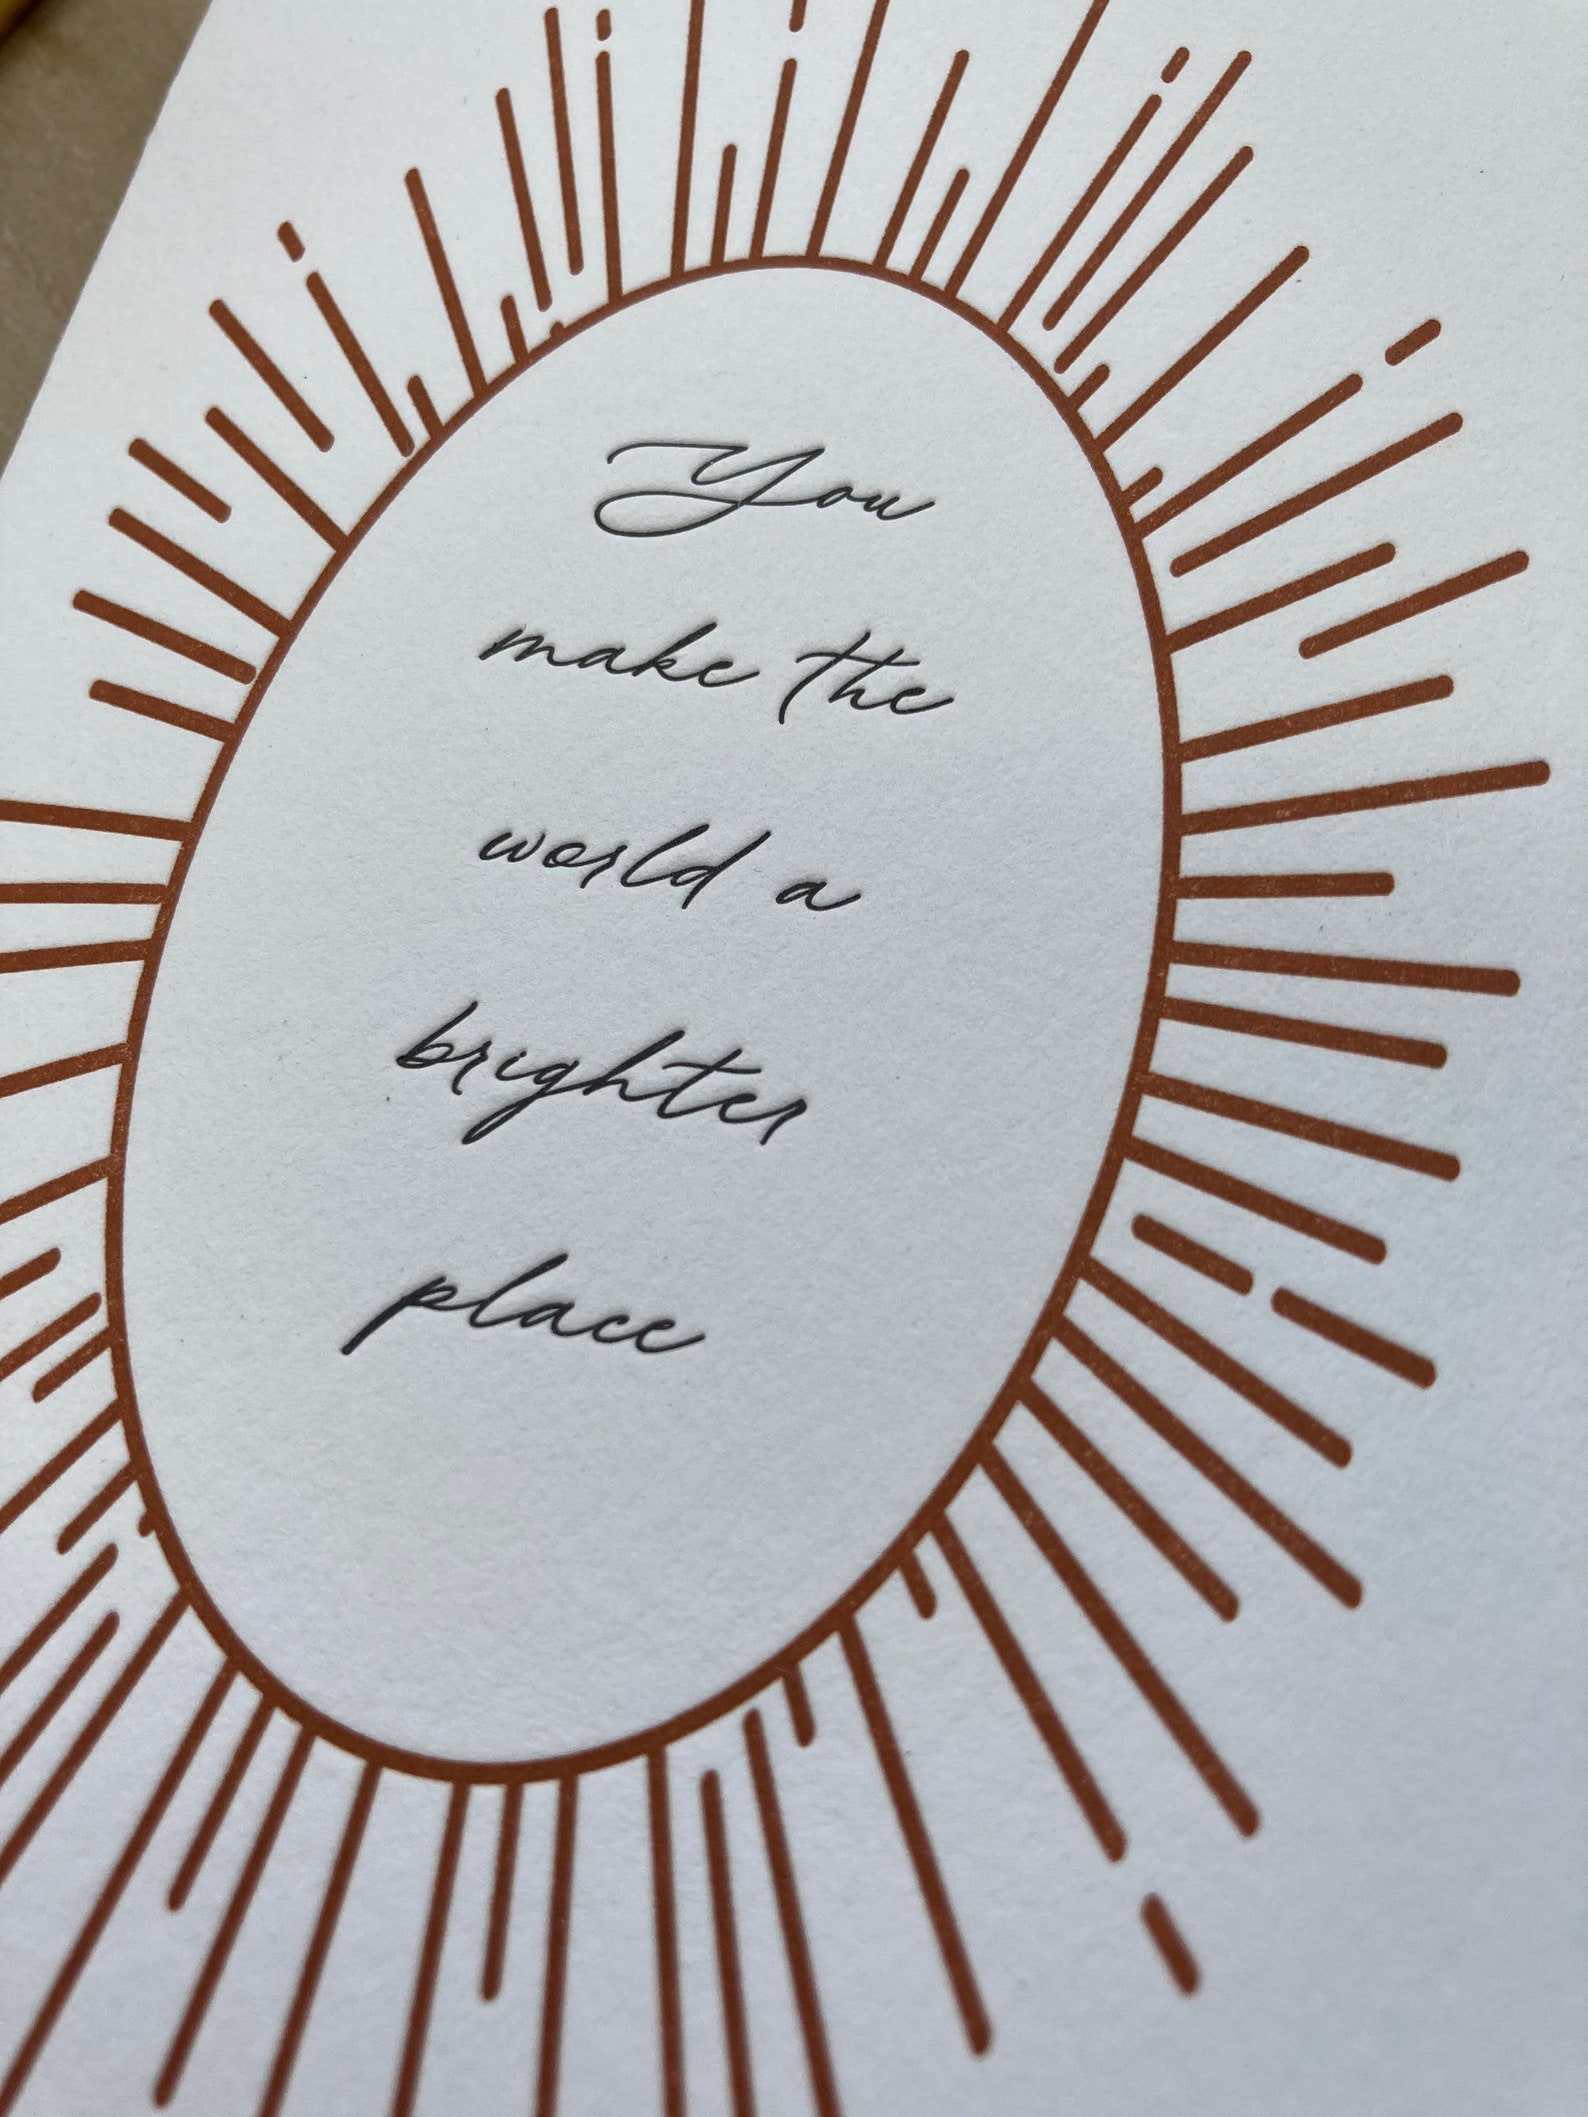 You
make the
world a
brighter
place